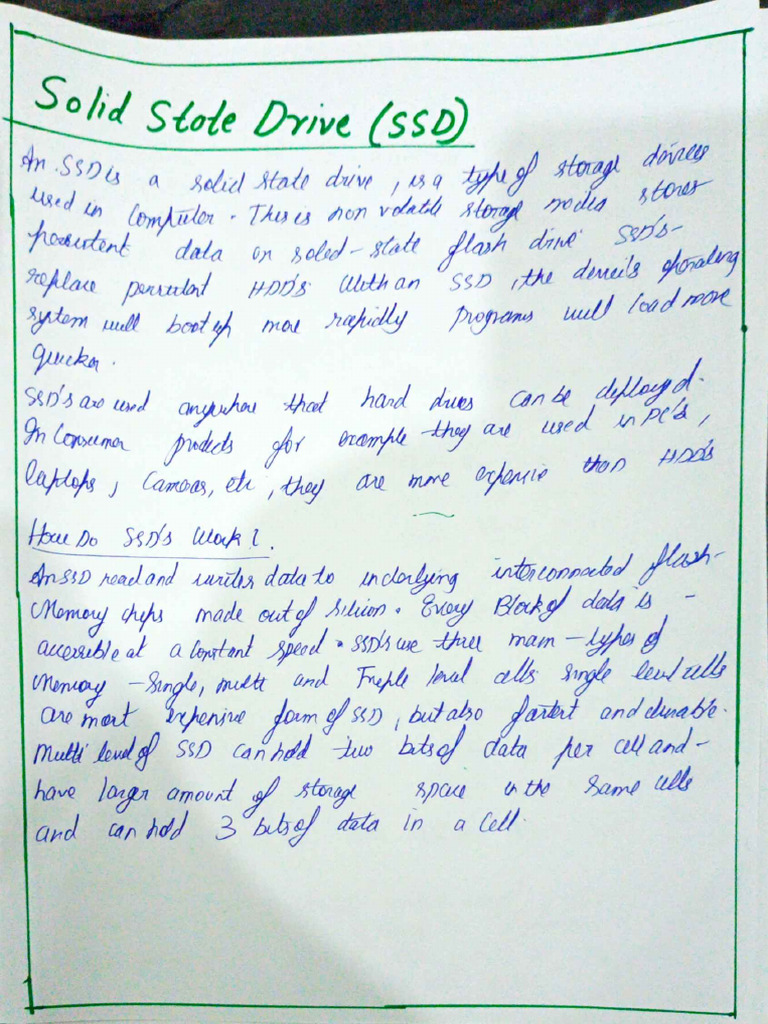 Solid State Drive (SSD)
An SSD is a solid state drive, is a type of storage devices
used in Computer. This is non volatile storage media stores
persistent data on solid-state flash drive SSD's-
replace persistent HDD's With an SSD, the device's operating
system will boot up more rapidly Programs will load more
quicker.
SSD's are used anywhere that hard drives can be deployed.
In Consumer products for example they are used in PC's,
laptops, Cameras, etc, they are more expensive than HDD's
How Do SSD's Work?
An SSD read and writes data to underlying interconnected flash-
Memory chips made out of silicon. Every Block of data is -
accessible at a constant speed. SSD's use three main-types of
Memory - Single, multi and Treple level cells single level cells
are most expensive form of SSD, but also fastest and durable.
Multi level of SSD can hold two bits of data per cell and-
have larger amount of storage space in the same cells
and can hold 3 bits of data in a cell.